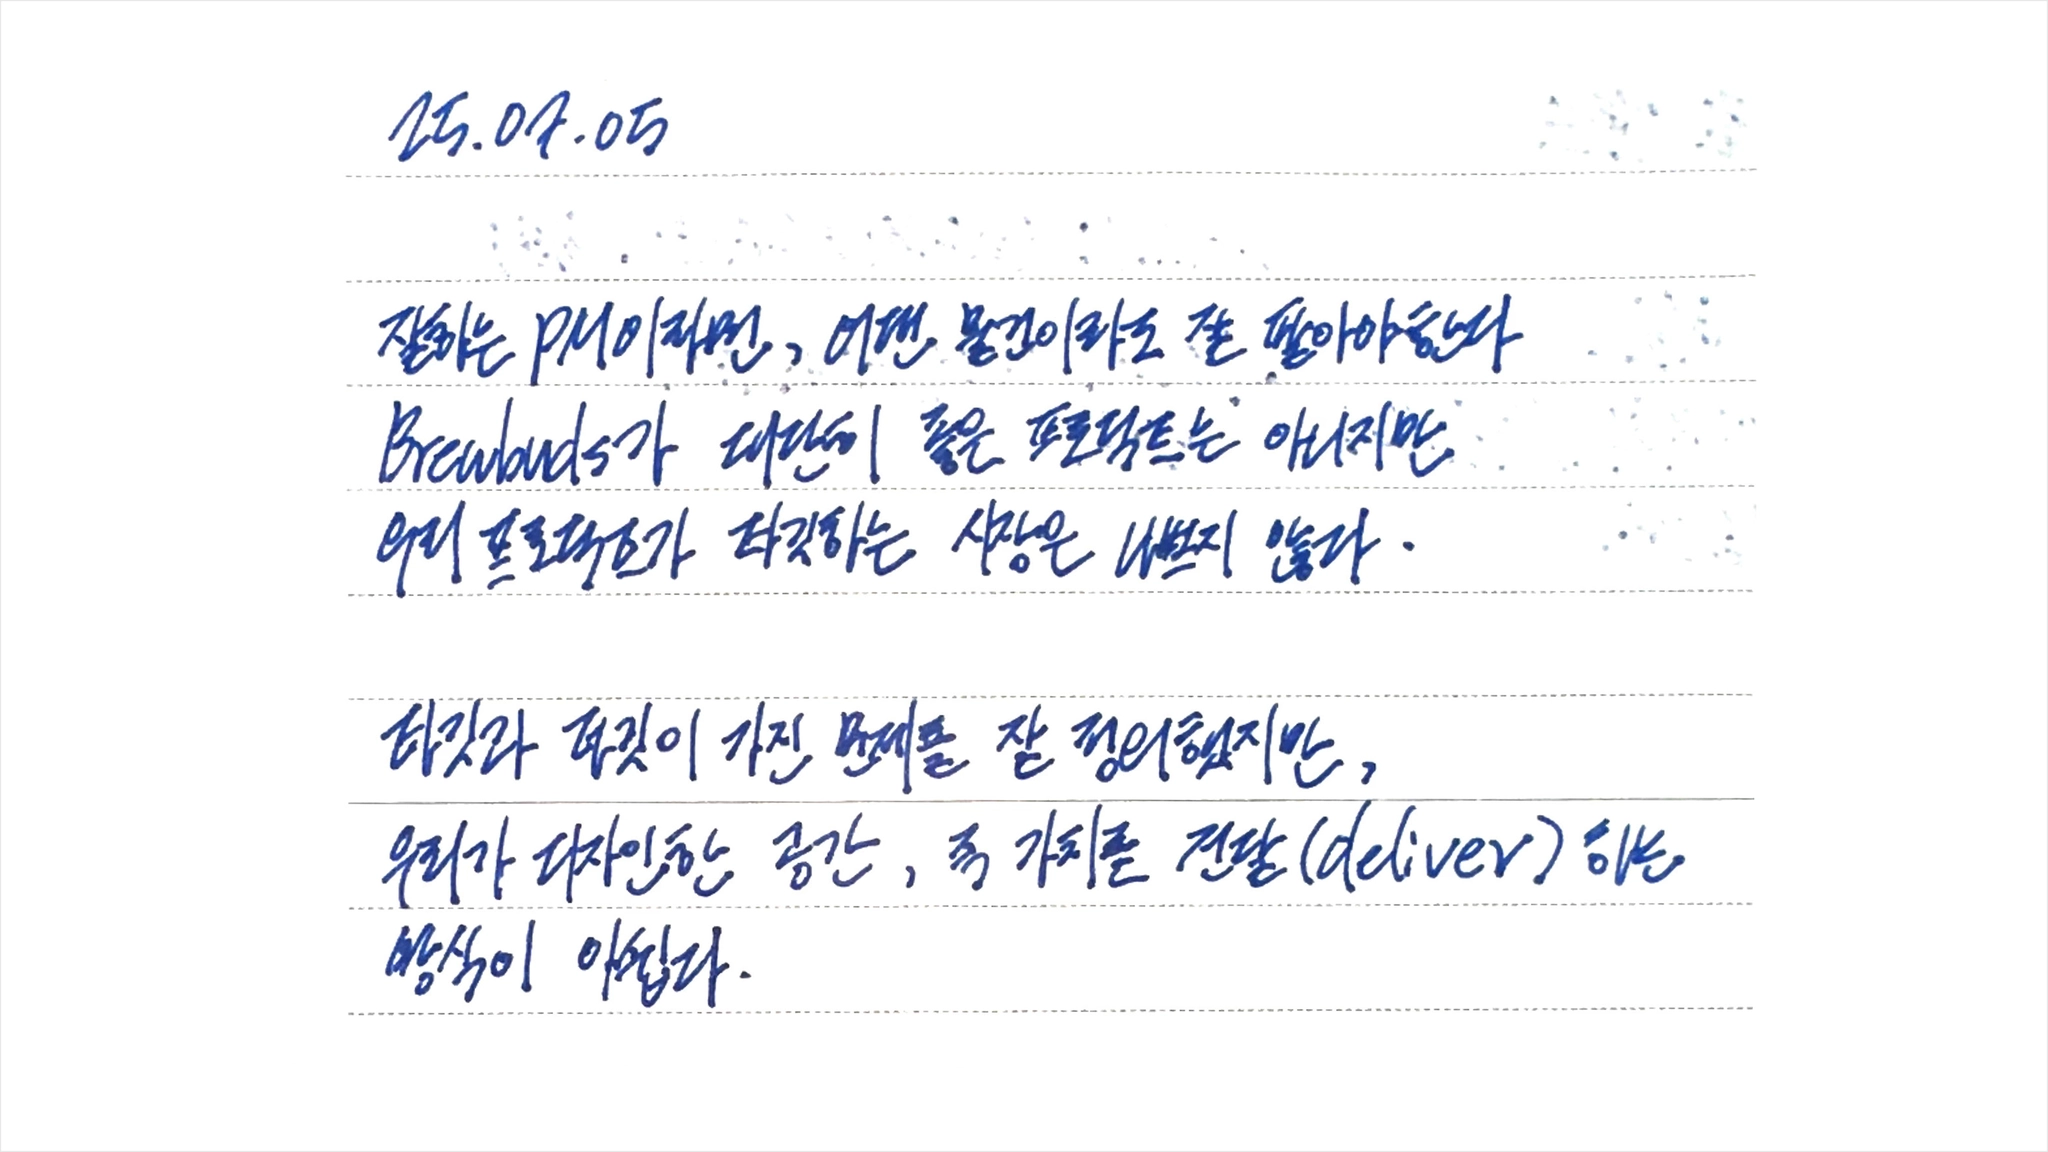 25.07.05
잘하는 PM이라면, 어떤 물건이라도 잘 팔아야한다
Brewbuds가 대단히 좋은 프로덕트는 아니지만
우리 프로덕트가 타깃하는 시장은 나쁘지 않다.
타깃과 타깃이 가진 문제를 잘 정의했지만,
우리가 디자인한 공간, 즉 가치를 전달(deliver)하는
방식이 아쉽다.